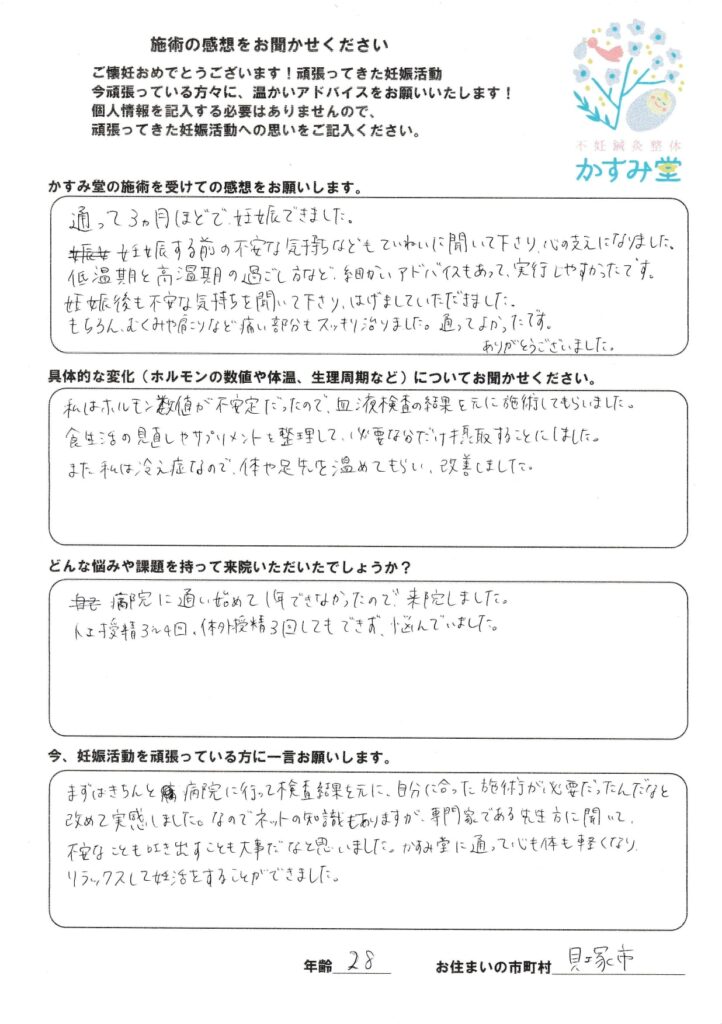 施術の感想をお聞かせください
ご懐妊おめでとうございます！頑張ってきた妊娠活動
今頑張っている方々に、温かいアドバイスをお願いいたします！
個人情報を記入する必要はありませんので、
頑張ってきた妊娠活動への思いをご記入ください。
不妊鍼灸整体
かすみ堂
かすみ堂の施術を受けての感想をお願いします。
通って3ヵ月ほどで、妊娠できました。
妊娠する前の不安な気持ちなどもていねいに聞いて下さり、心の支えになりました。
低温期と高温期の過ごし方など、細かいアドバイスもあって、実行しやすかったです。
妊娠後も不安な気持ちを聞いて下さり、はげましていただきました。
もちろん、むくみや肩こりなど痛い部分もスッキリ治りました。通ってよかったです。
ありがとうございました。
具体的な変化（ホルモンの数値や体温、生理周期など）についてお聞かせください。
私はホルモン数値が不安定だったので、血液検査の結果を元に施術してもらいました。
食生活の見直しやサプリメントを整理して、必要な分だけ摂取することにしました。
また私は冷え症なので、体や足先を温めてもらい、改善しました。
どんな悩みや課題を持って来院いただいたでしょうか？
病院に通い始めて1年できなかったので、来院しました。
人工授精3〜4回、体外授精3回してもできず、悩んでいました。
今、妊娠活動を頑張っている方に一言お願いします。
まずはきちんと病院に行って検査結果を元に、自分に合った施術が必要だったんだなと
改めて実感しました。なのでネットの知識もありますが、専門家である先生方に聞いて、
不安なことも吐き出すことも大事だなと思いました。かすみ堂に通って心も体も軽くなり、
リラックスして妊活をすることができました。
年齢 28 お住まいの市町村 貝塚市